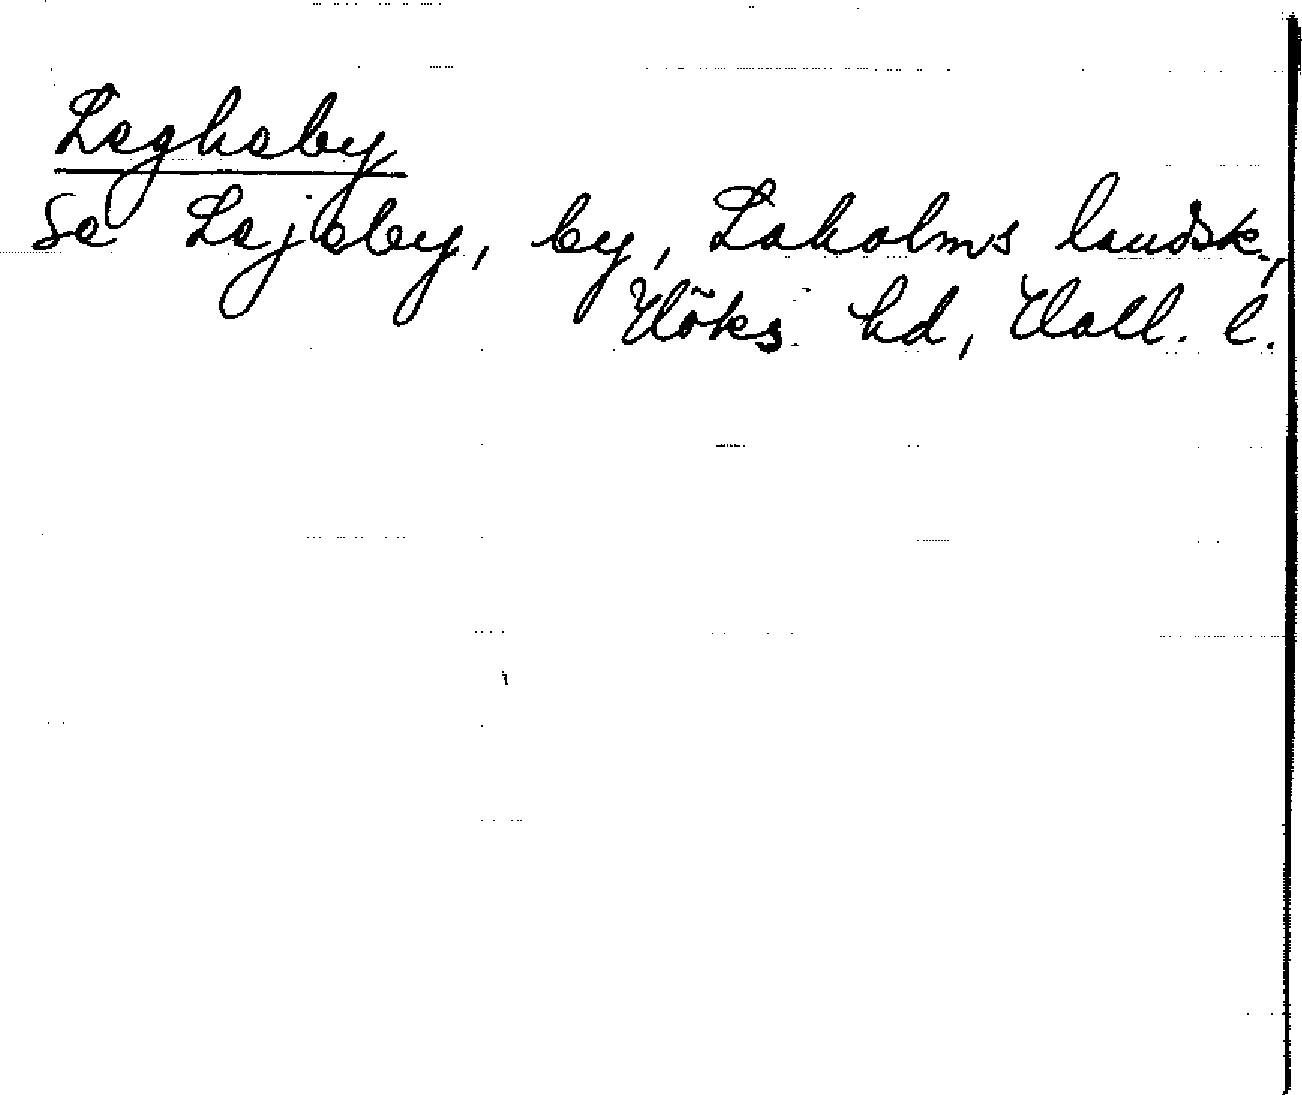 Legheby
Se Lejeby, by, Laholms landsk.,
Höks hd, Hall. l.